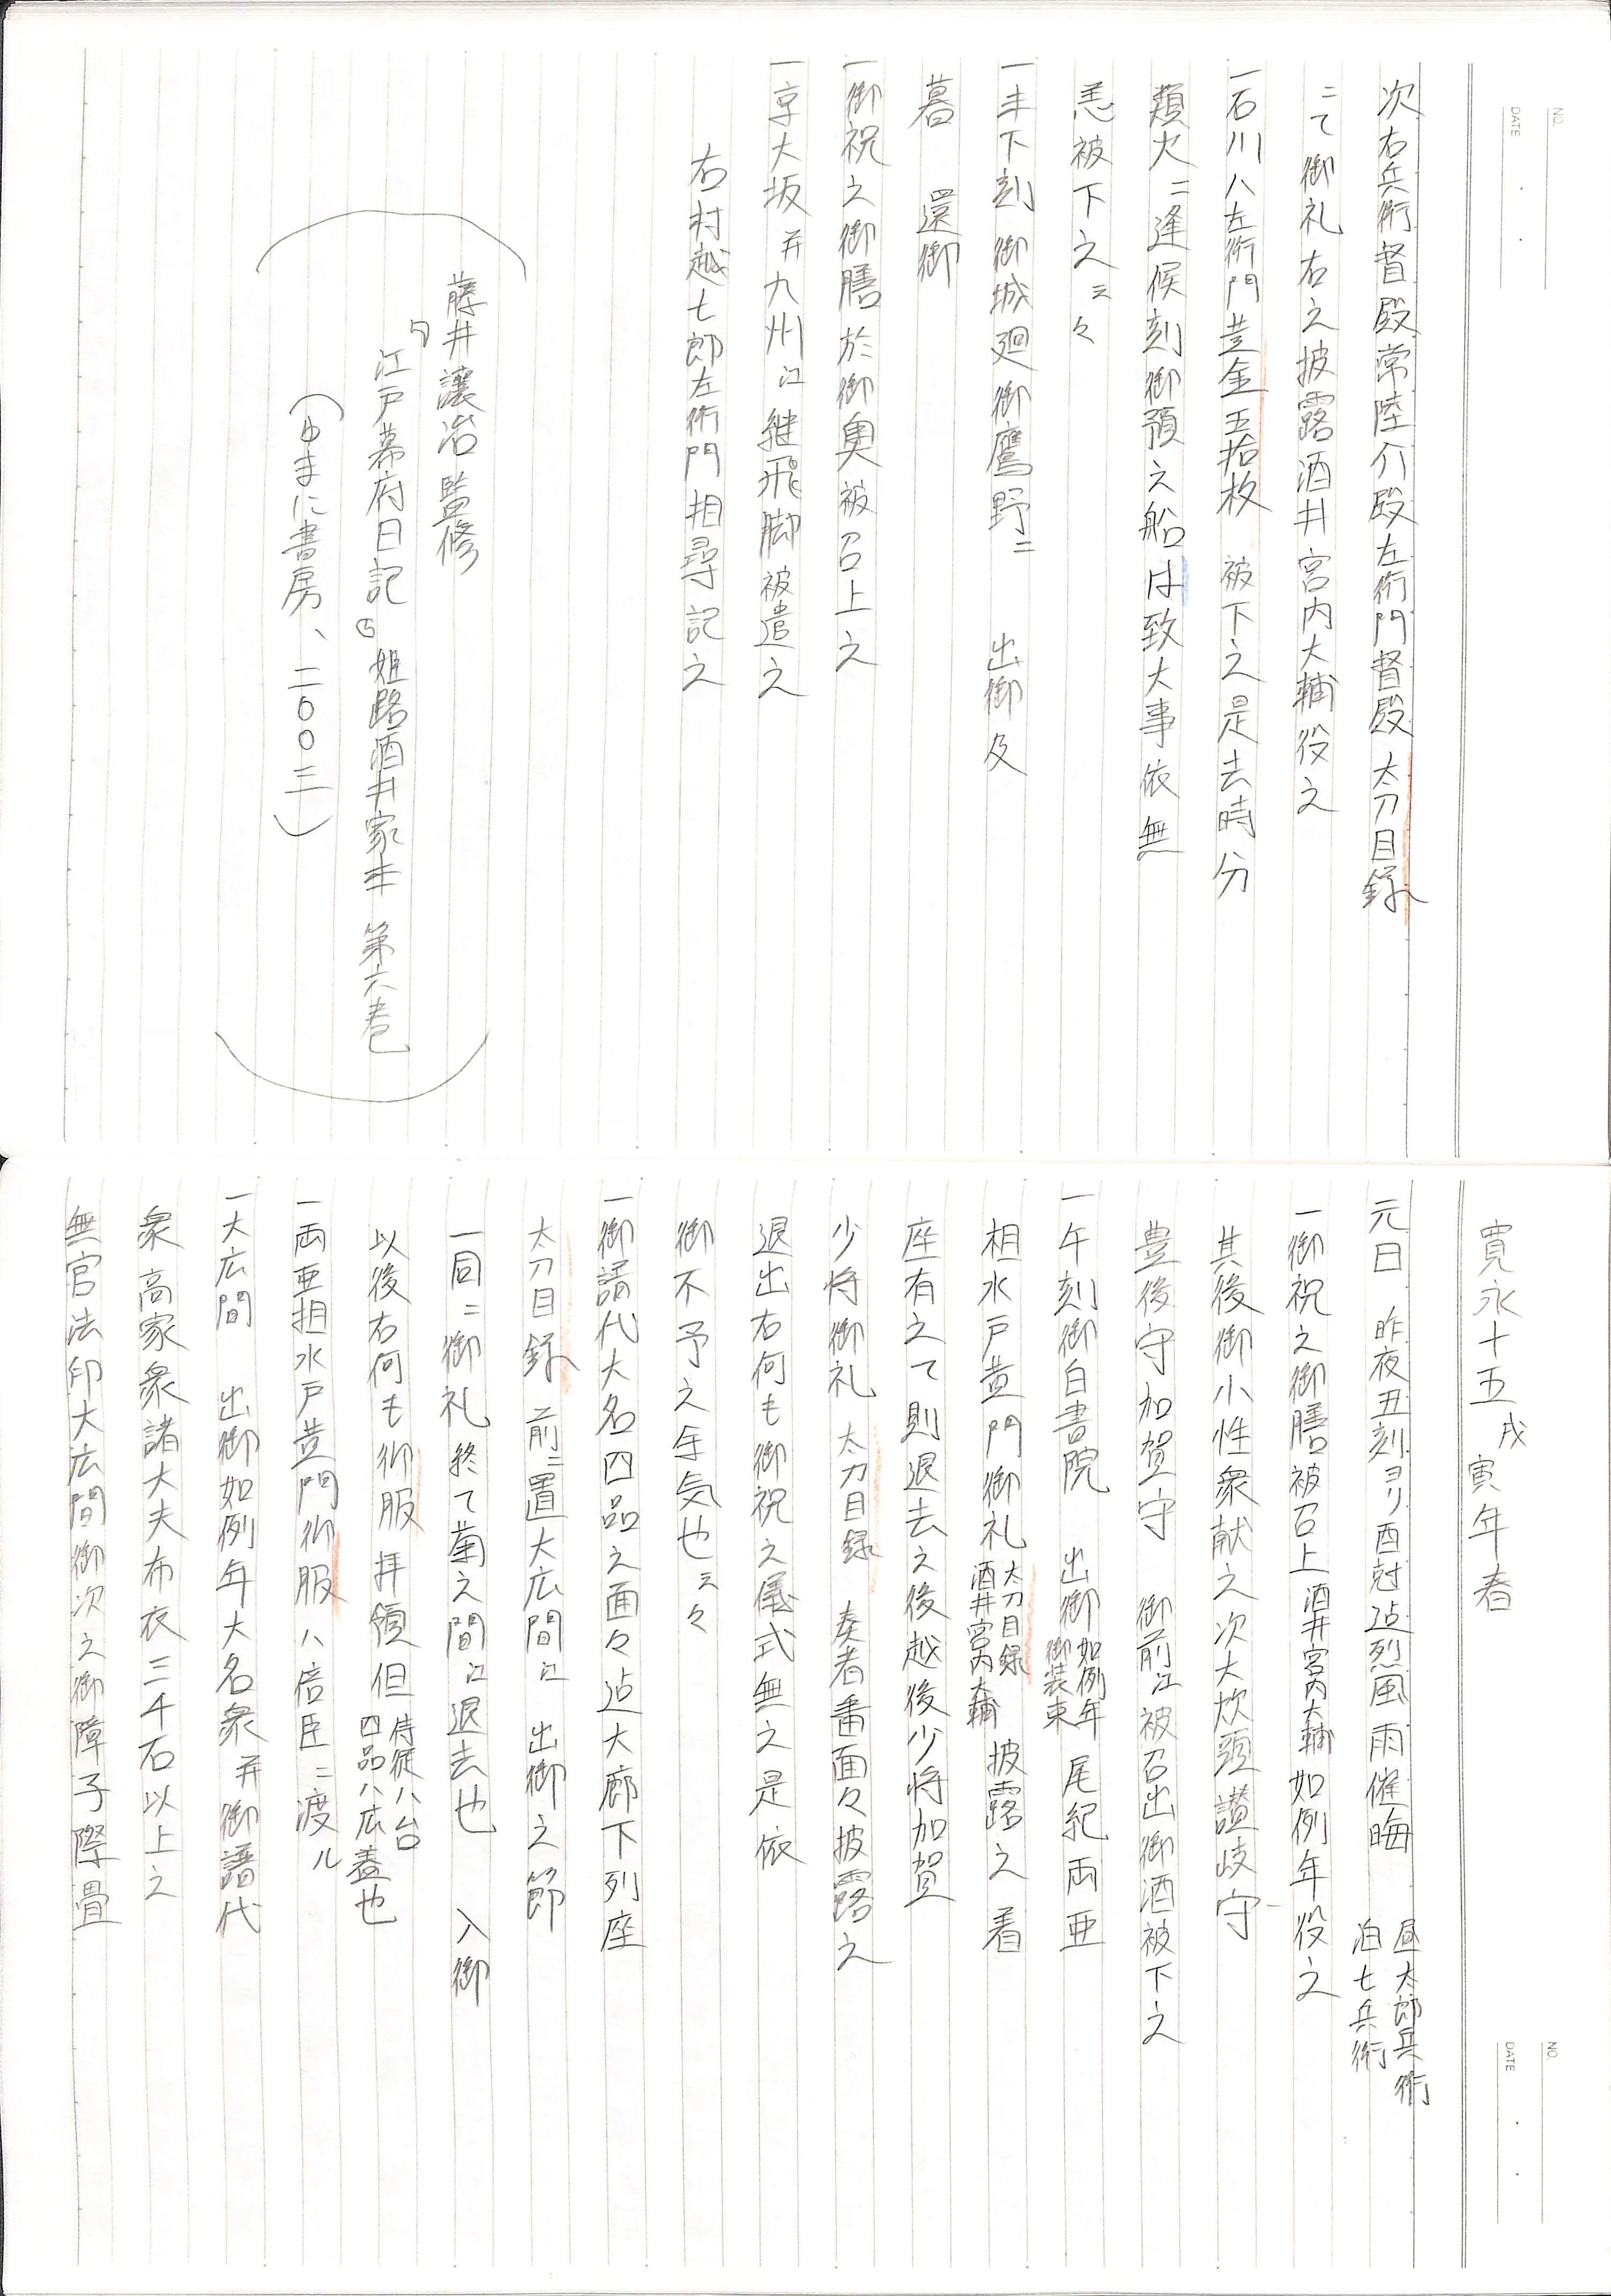 NO.
DATE
次右兵衛督殿常陸介殿左衛門督殿 太刀目録
ニて御礼右之披露酒井宮内大輔役之
一石川八左衛門黄金五拾枚 被下之是去時分
類火ニ逢候刻御預之船は致大事依無
恙被下之云々
一未下刻御城廻御鷹野ニ 出御及
暮 還御
一御祝之御膳於御奥被召上之
一京大坂并九州江継飛脚被遣之
右村越七郎左衛門相尋記之
藤井讓治 監修
『江戸幕府日記 姫路酒井家本 第六巻
(ゆまに書房、二〇〇三)
NO.
DATE
寛永十五戊寅年春
元日 昨夜丑刻ヨリ酉尅迠烈風雨催晦 昼太郎兵衛
泊七兵衛
一御祝之御膳被召上酒井宮内大輔如例年役之
其後御小性衆献之次大炊頭讃岐守
豊後守加賀守 御前江被召出御酒被下之
一午刻御白書院 出御如例年
御装束 尾紀両亜
相水戸黄門御礼太刀目録
酒井宮内大輔 披露之着
座有之て則退去之後越後少将加賀
少将御礼 太刀目録 奏者番面々披露之
退出右何も御祝之儀式無之是依
御不予之余気也云々
一御譜代大名四品之面々迠大廊下列座
太刀目録 前ニ置大広間江 出御之節
一同ニ御礼終て菊之間江退去也 入御
以後右何も御服 拝領但侍従ハ台
四品ハ広蓋也
一両亜相水戸黄門御服ハ倍臣ニ渡ル
一大広間 出御如例年大名衆并御譜代
衆高家衆諸大夫布衣三千石以上之
無官法印大広間御次之御障子際畳